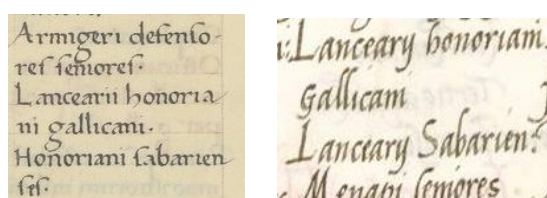 Armigeri defenſo-
reſ ſenioreſ·
Lancearii honoria
ni gallicani·
Honoriani ſabarien
ſeſ·
Lanceary honoriani
gallicani
Lanceary Sabarien:
Menapi ſeniores